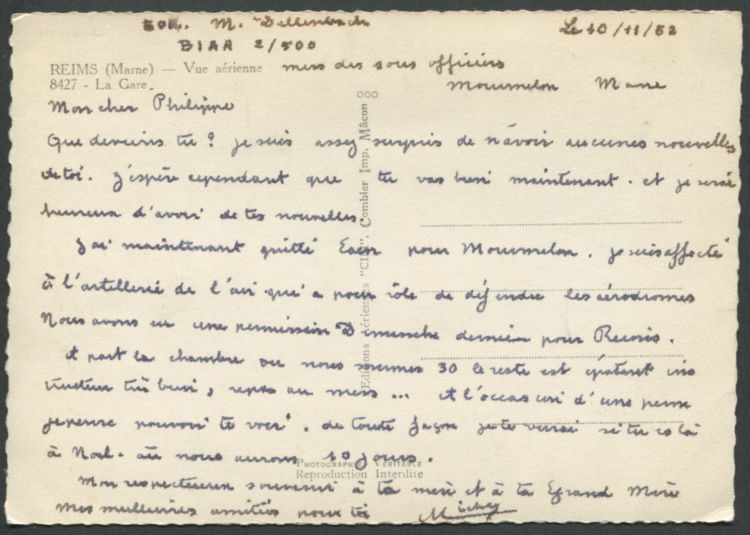 EOR. M. Dellenbach Le 10/11/52
BIAA 2/500
REIMS (Marne) — Vue aérienne mess des sous officiers
8427 - La Gare. Mourmelon Marne
Mon cher Philippe
Que deviens tu ? je suis assez surpris de n'avoir aucunes nouvelles
de toi. J'espère cependant que tu vas bien maintenant. et je serai
heureux d'avoir de tes nouvelles.
J'ai maintenant quitté pour Mourmelon. je suis affecté
à l'artillerie de l'air qui a pour rôle de défendre les aérodromes
Nous avons eu une permission Dimanche dernier pour Reims.
A part la chambre ou nous sommes 30 le reste est épatant ins
tructeur très bien, repas au mess ... A l'occasion d'une perm
je pense pouvoir te voir. de toute façon je te verrai si tu es là
à Noel. où nous aurons 10 jours.
Mon respectueux souvenir à ta mère et à ta Grand Mère
Mes meilleures amitiés pour toi Michey
Editions Aériennes "CIM" Combier Imp. Mâcon
PHOTOGRAPHIE VÉRITABLE
Reproduction Interdite